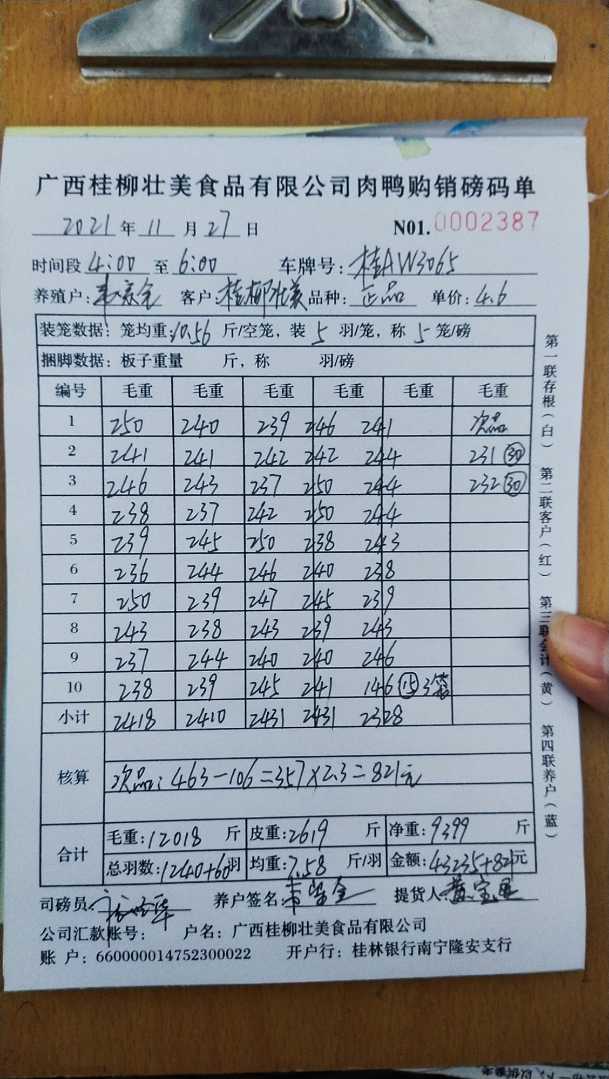 广西桂柳壮美食品有限公司肉鸭购销磅码单
2021 年 11 月 27 日 N01. 0002387
时间段 4:00 至 6:00 车牌号: 桂AW3065
养殖户: 客户: 桂柳壮美 品种: 正品 单价: 4.6
装笼数据: 笼均重: 10.56 斤/空笼, 装 5 羽/笼, 称 5 笼/磅
捆脚数据: 板子重量 斤, 称 羽/磅
编号 毛重 毛重 毛重 毛重 毛重 毛重
1 250 240 239 246 241 次品
2 241 241 242 242 244 231 30
3 246 243 237 250 244 232 30
4 238 237 242 250 244
5 239 245 250 238 243
6 236 244 246 240 238
7 250 239 247 245 239
8 243 238 243 239 243
9 237 244 240 240 246
10 238 239 245 241 146 15 3笼
小计 2418 2410 2431 2431 2328
核算 次品: 463-106=357×2.3=821元
合计 毛重: 12018 斤 皮重: 2619 斤 净重: 9399 斤
总羽数: 1240+60 羽 均重: 7.58 斤/羽 金额: 43235+821 元
司磅员 养户签名: 提货人
公司汇款账号: 户名: 广西桂柳壮美食品有限公司
账 户: 660000014752300022 开户行: 桂林银行南宁隆安支行
第一联存根(白) 第二联客户(红) 第三联会计(黄) 第四联养户(蓝)